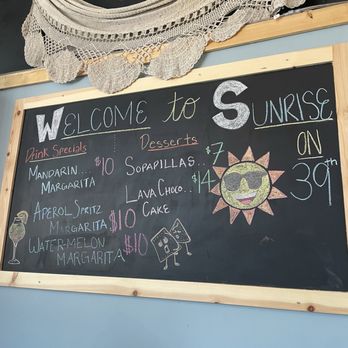 WELCOME to SUNRISE
ON
39th
Drink Specials
MANDARIN... $10
MARGARITA
APEROL SPRITZ
MARGARITA $10
WATER-MELON
MARGARITA $10
Desserts
SOPAPILLAS.. $7
LAVA CHOCO.. $14
CAKE